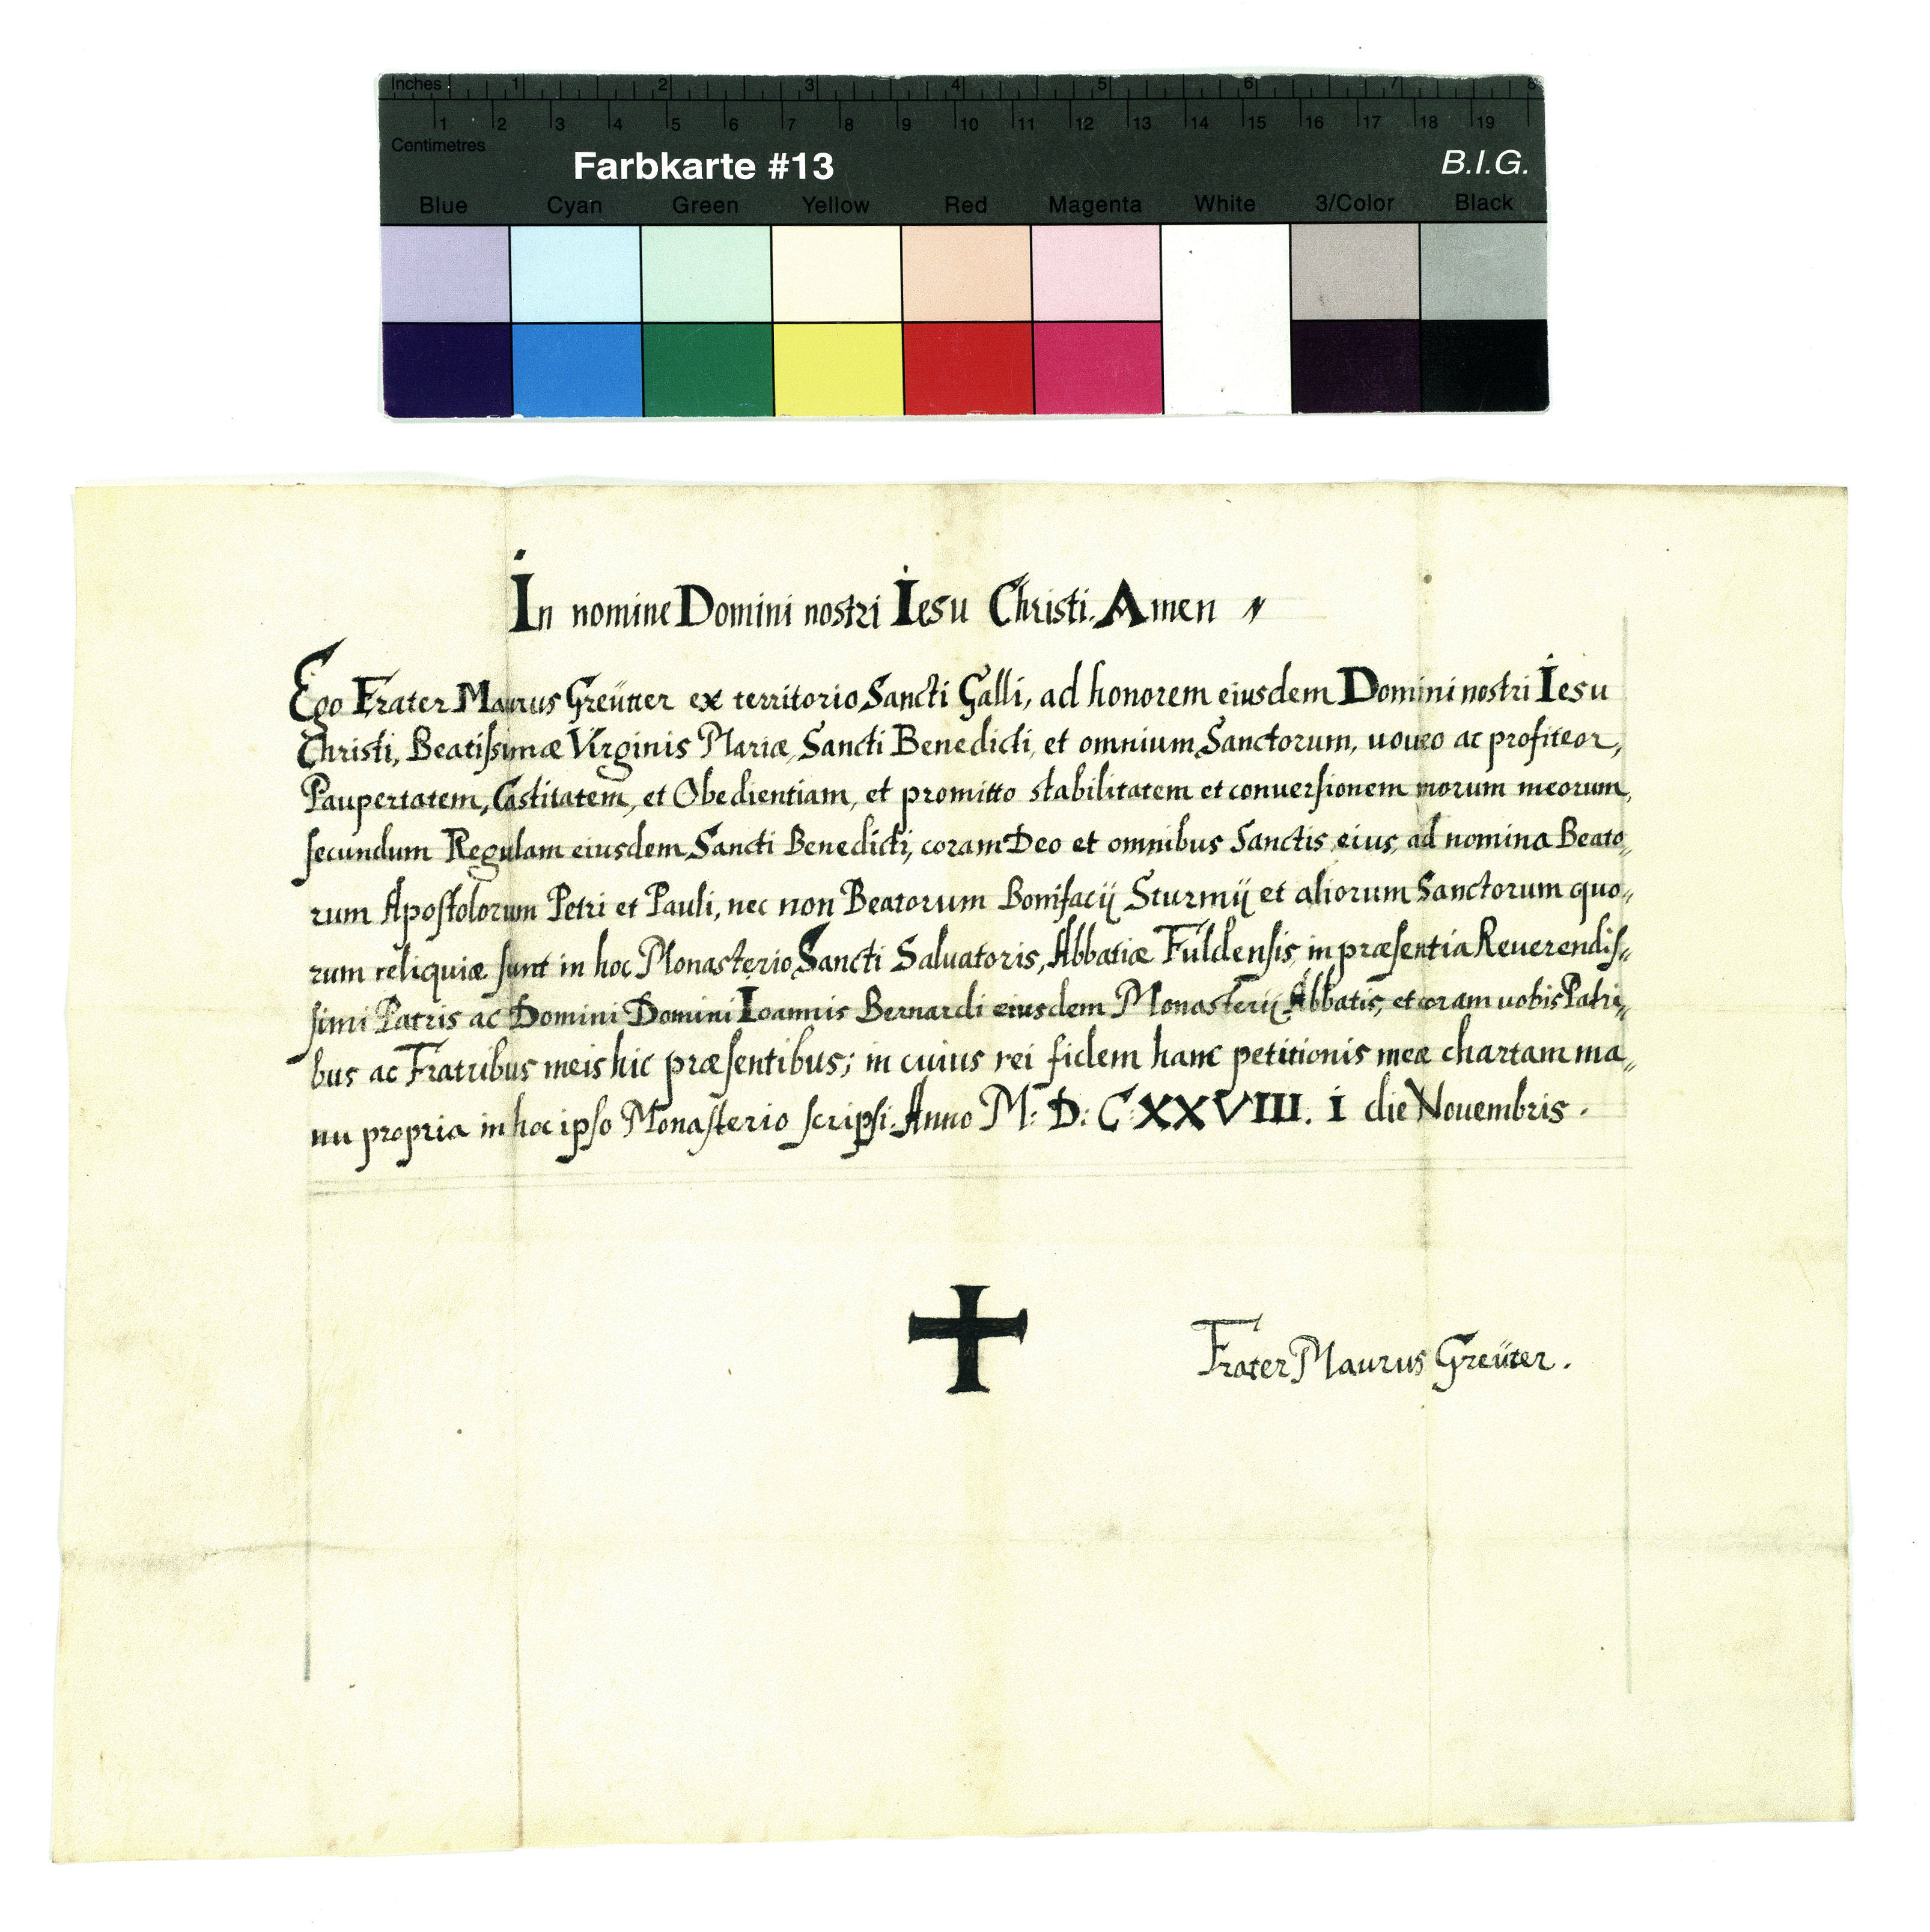 Inches 1 2 3 4 5 6 7 8
1 2 3 4 5 6 7 8 9 10 11 12 13 14 15 16 17 18 19
Centimetres
Farbkarte #13 B.I.G.
Blue Cyan Green Yellow Red Magenta White 3/Color Black
In nomine Domini nostri Iesu Christi. Amen
Ego Frater Maurus Greütter ex territorio Sancti Galli, ad honorem eiusdem Domini nostri Iesu
Christi, Beatiſsimæ Virginis Mariæ, Sancti Benedicti, et omnium Sanctorum, uoueo ac profiteor,
Paupertatem, Castitatem, et Obedientiam, et promitto stabilitatem et conuerſionem morum meorum,
ſecundum Regulam eiusdem Sancti Benedicti, coram Deo et omnibus Sanctis eius, ad nomina Beato„
rum Apoſtolorum Petri et Pauli, nec non Beatorum Bonifacij Sturmij et aliorum Sanctorum quo„
rum reliquiæ ſunt in hoc Monasterio Sancti Saluatoris, Abbatiæ Fuldenſis, in præſentia Reuerendiſ„
ſimi Patris ac Domini Domini Ioannis Bernardi eiusdem Monasterij Abbatis, et coram uobis Patri„
bus ac Fratribus meis hic præſentibus; in cuius rei fidem hanc petitionis meæ chartam ma„
nu propria in hoc ipſo Monaſterio ſcripſi. Anno M: D: C: XXVIII. i die Nouembris.
Frater Maurus Greüter.